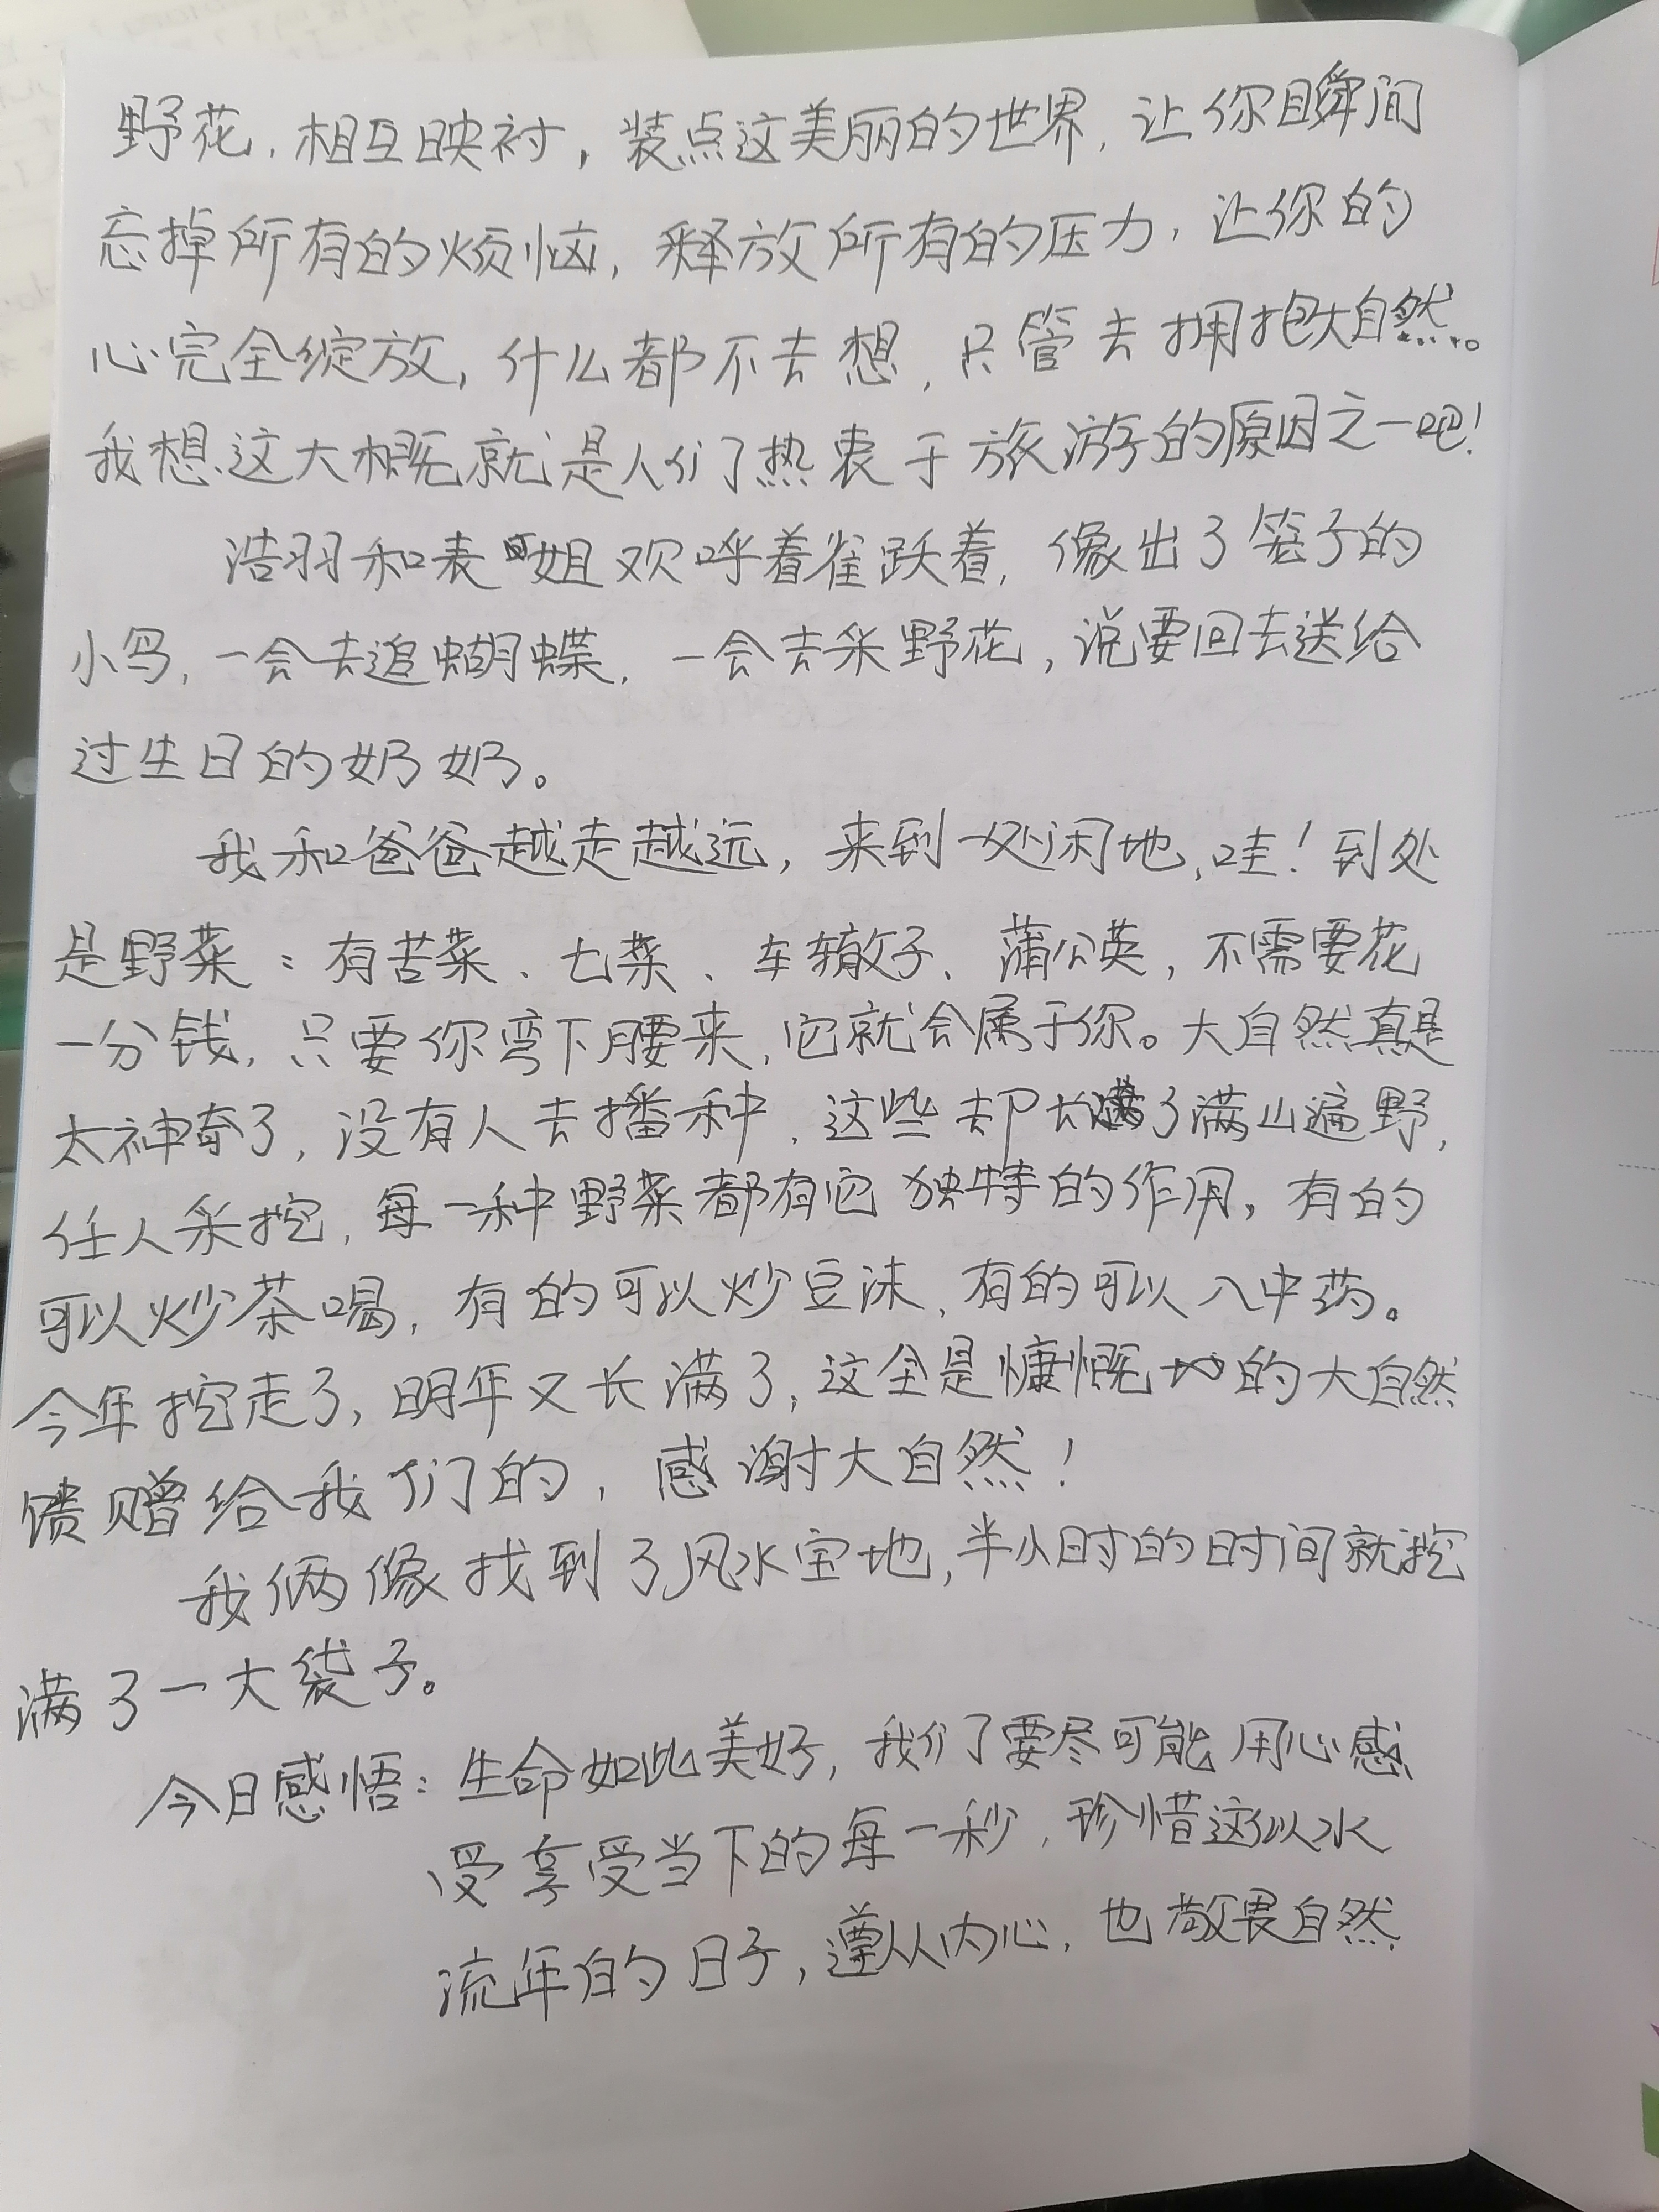 野花，相互映衬，装点这美丽的世界，让你瞬间
忘掉所有的烦恼，释放所有的压力，让你的
心完全绽放，什么都不去想，只管去拥抱大自然……。
我想这大概就是人们热衷于旅游的原因之一吧！
浩羽和表姐欢呼着雀跃着，像出了笼子的
小鸟，一会去追蝴蝶，一会去采野花，说要回去送给
过生日的奶奶。
我和爸爸越走越远，来到一处闲地，哇！到处
是野菜：有苦菜、七菜、车辙子、蒲公英，不需要花
一分钱，只要你弯下腰来，它就会属于你。大自然真是
太神奇了，没有人去播种，这些却长满了满山遍野，
任人采挖，每一种野菜都有它独特的作用，有的
可以炒茶喝，有的可以炒豆沫，有的可以入中药。
今年挖走了，明年又长满了，这全是慷慨的大自然
馈赠给我们的，感谢大自然！
我俩像找到了风水宝地，半小时的时间就挖
满了一大袋子。
今日感悟：生命如此美好，我们要尽可能用心感
受享受当下的每一秒，珍惜这似水
流年的日子，遵从内心，也敬畏自然